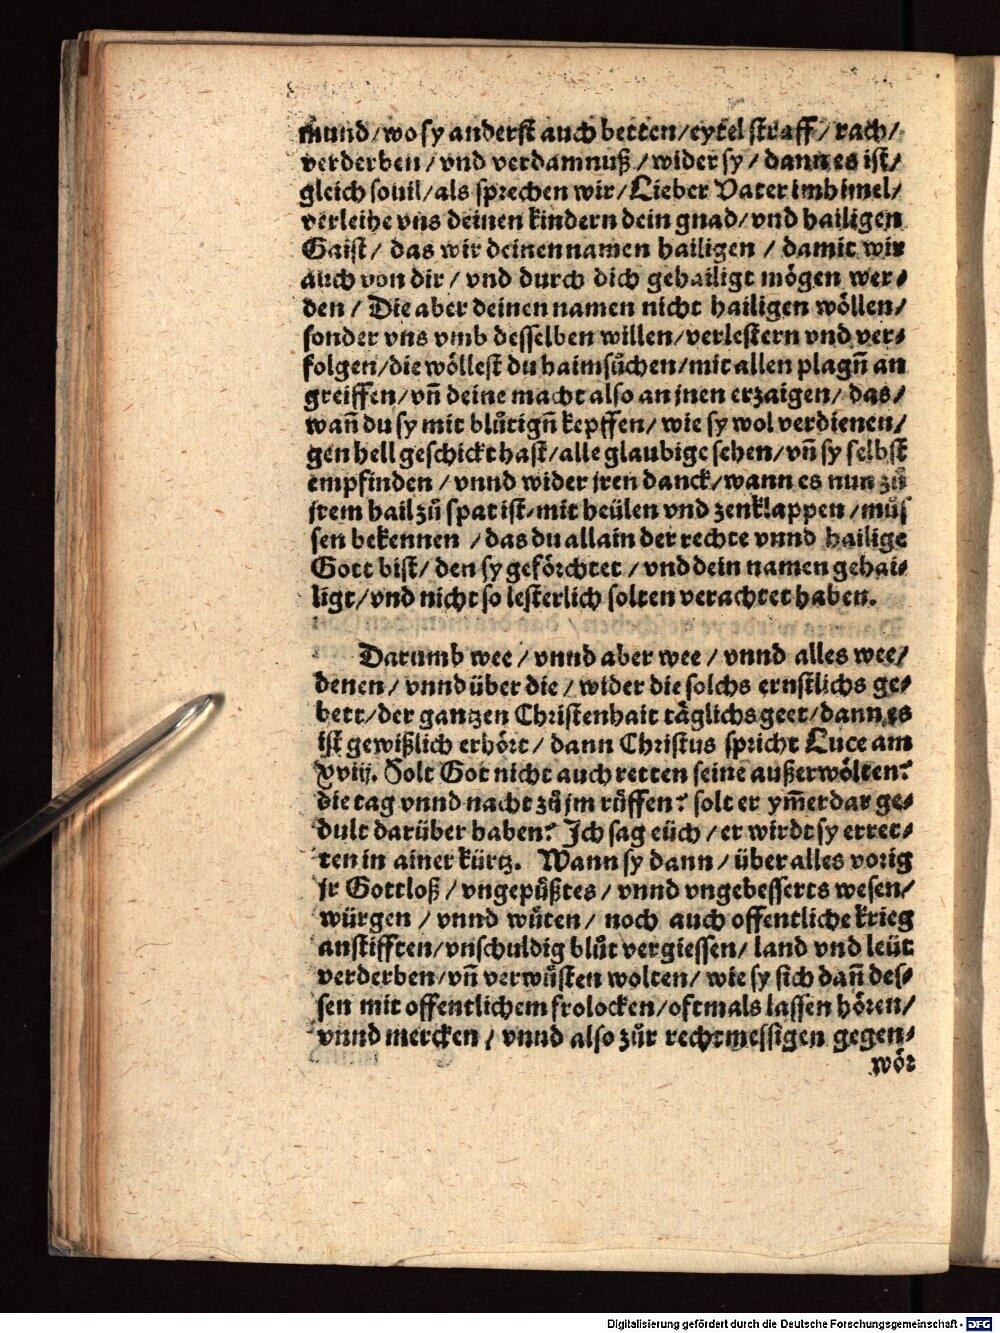 mund/wo sy anderst auch betten/eytel straff/rach/
verderben/vnd verdamnuß/wider sy/dann es ist/
gleich souil/als sprechen wir/Lieber Vater im himel/
verleihe vns deinen kindern dein gnad/vnd hailigen
Gaist/ das wir deinen namen hailigen/ damit wir
auch von dir/ vnd durch dich gehailigt mögen wer⸗
den/ Die aber deinen namen nicht hailigen wöllen/
sonder vns vmb desselben willen/verlestern vnd ver⸗
folgen/die wöllest du haimsůchen/mit allen plagn̄ an
greiffen/vn̄ deine macht also an jnen erzaigen/ das/
wan̄ du sy mit blůtign̄ kepffen/ wie sy wol verdienen/
gen hell geschickt hast/alle glaubige sehen/vn̄ sy selbst
empfinden/vnnd wider jren danck/wann es nun zů
jrem hail zů spat ist/mit heülen vnd zenklappen/můs
sen bekennen /das du allain der rechte vnnd hailige
Gott bist/ den sy geförchtet/vnd dein namen gehai⸗
ligt/vnd nicht so lesterlich solten verachtet haben.
Darumb wee/vnnd aber wee/vnnd alles wee/
denen/vnnd über die/wider die solchs ernstlichs ge⸗
bett/der gantzen Christenhait täglichs geet/dann es
ist gewißlich erhört/ dann Christus spricht Luce am
xviij. Solt Got nicht auch retten seine außerwölten?
die tag vnnd nacht zů jm růffen? solt er ym̄erdar ge⸗
dult darüber haben? Ich sag eüch/er wirdt sy erret⸗
ten in ainer kürtz. Wann sy dann/über alles vorig
jr Gottloß/vngepůßtes/vnnd vngebesserts wesen/
würgen/vnnd wůten/ noch auch offentliche krieg
anstifften/vnschuldig blůt vergiessen/ land vnd leüt
verderben/vn̄ verwůsten wolten/ wie sy sich dan̄ des⸗
sen mit offentlichem frolocken/oftmals lassen hören/
vnnd mercken/vnnd also zůr rechtmessigen gegen⸗
wör
Digitalisierung gefördert durch die Deutsche Forschungsgemeinschaft - DFG